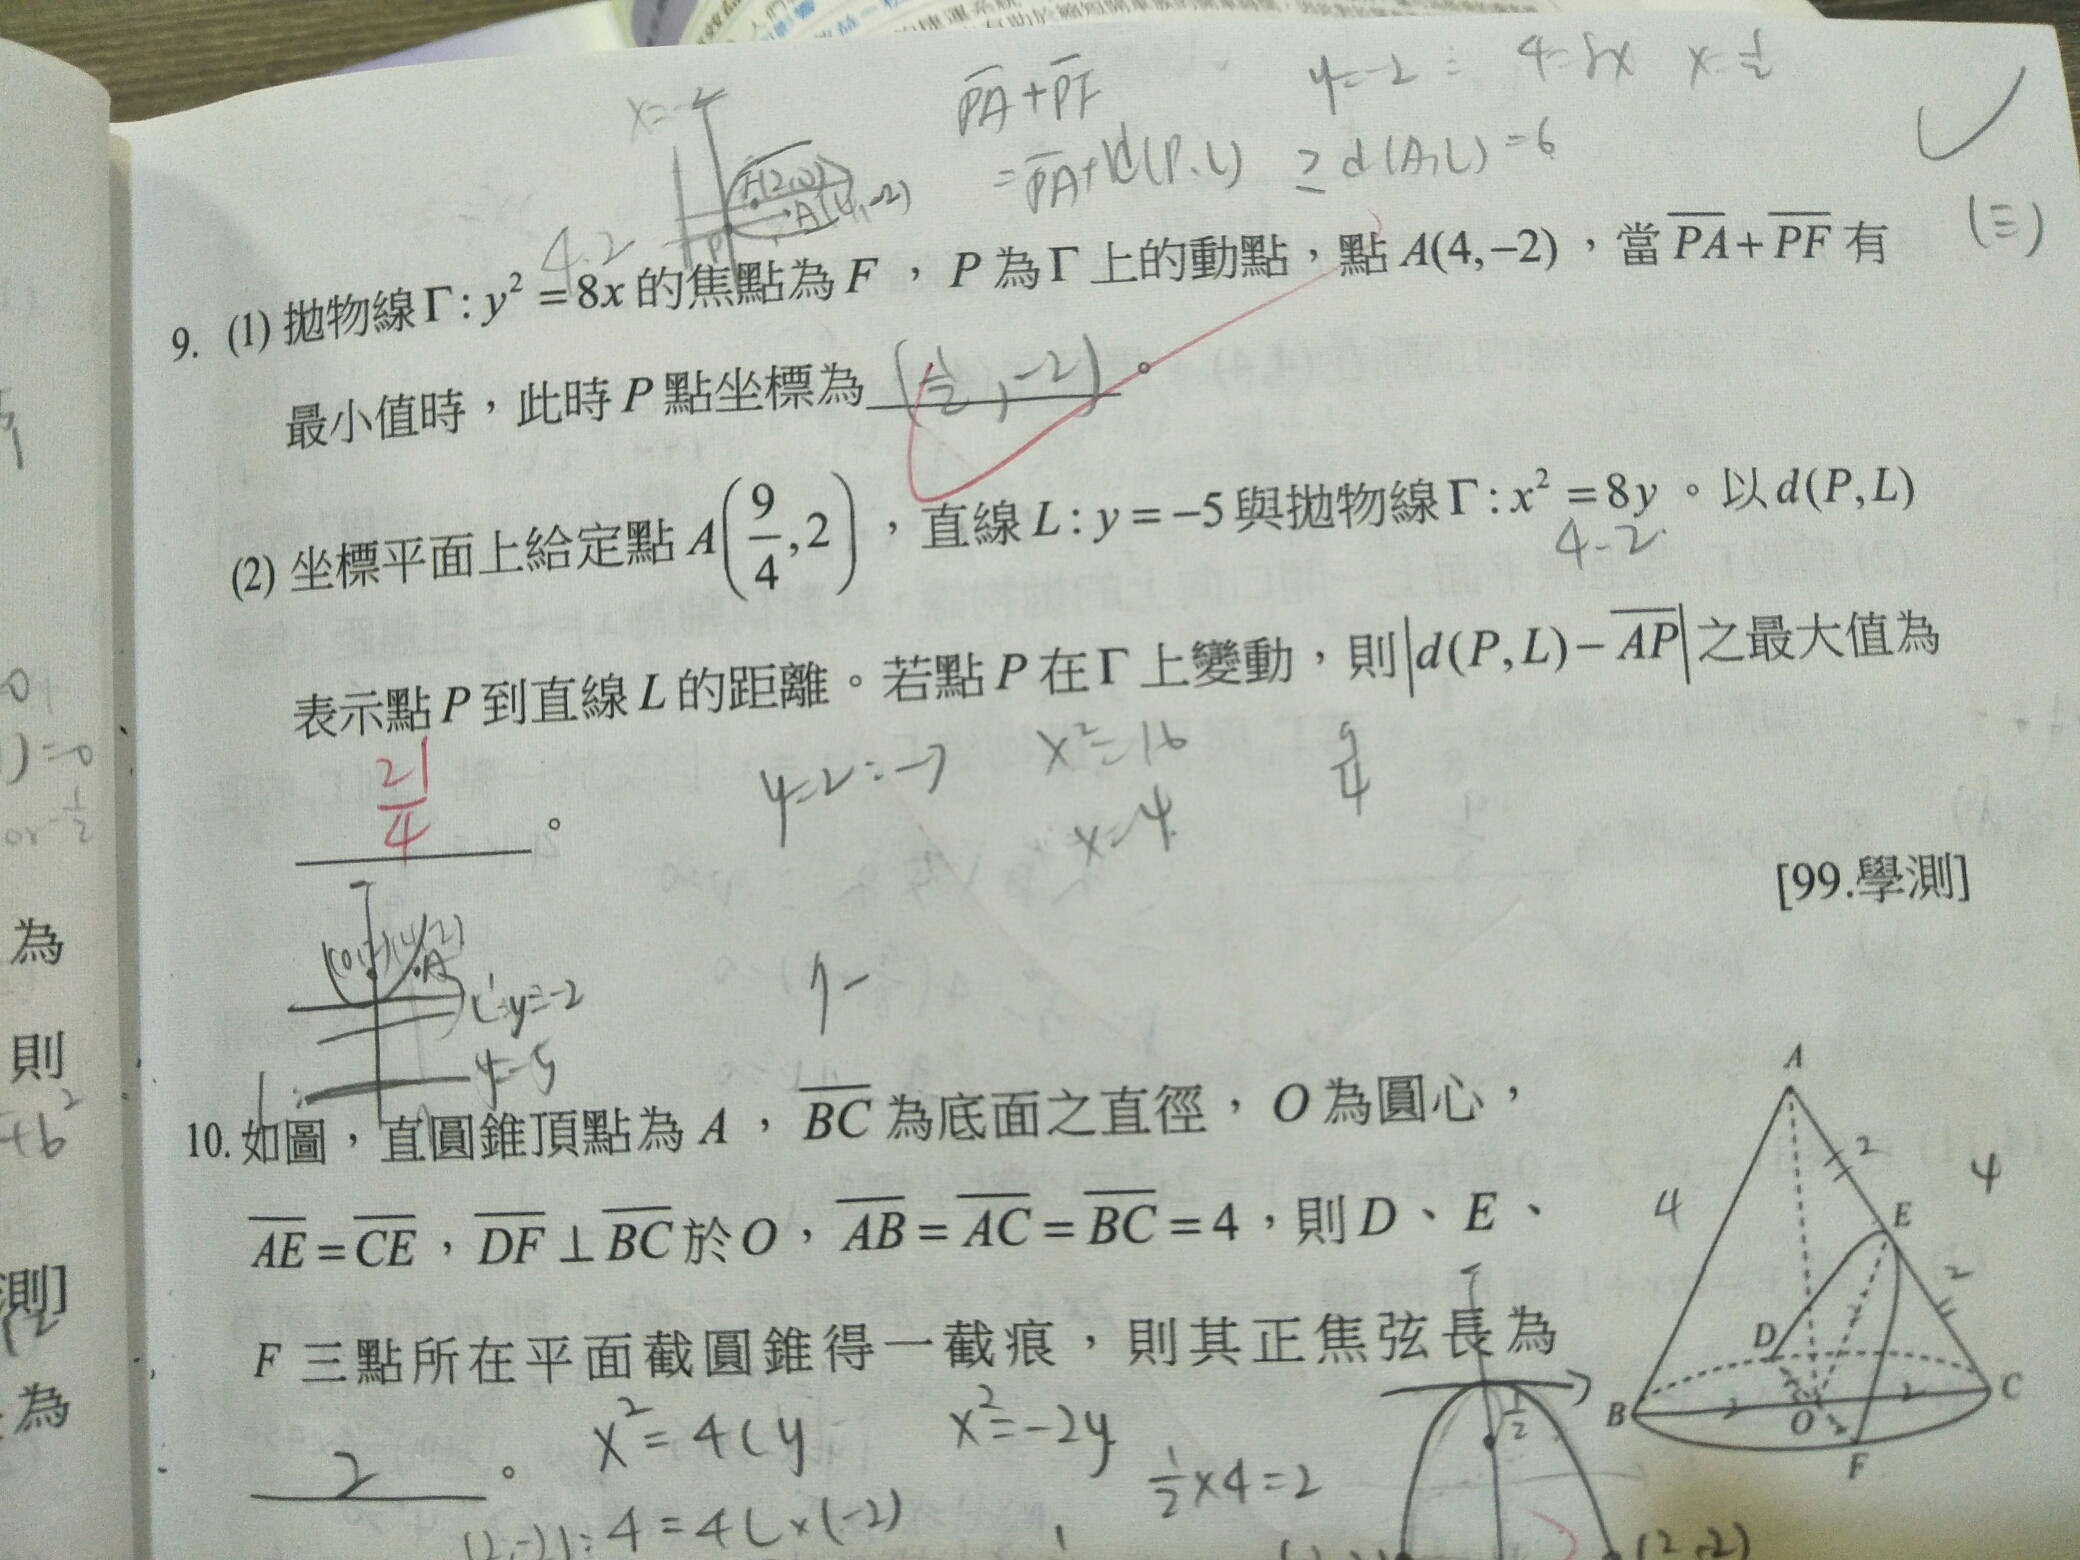 x=-2
PA+PF
y=-2: 4=8x x=1/2
=PA+d(P,L) ≥ d(A,L)=6
F(2,0)
A(4,-2)
(三)
4.2
9. (1) 拋物線Γ: y²=8x的焦點為F，P為Γ上的動點，點A(4,-2)，當PA+PF有
最小值時，此時P點坐標為 (1/2,-2)。
(2) 坐標平面上給定點A(9/4,2)，直線L: y=-5與拋物線Γ: x²=8y。以d(P,L)
4.2
表示點P到直線L的距離。若點P在Γ上變動，則|d(P,L)-AP|之最大值為
21/4。
y=2:→ x²=16 9/4
x=4
[99.學測]
A
L':y=-2
y=-5
10. 如圖，直圓錐頂點為A，BC為底面之直徑，O為圓心，
AE=CE，DF⊥BC於O，AB=AC=BC=4，則D、E、
F三點所在平面截圓錐得一截痕，則其正焦弦長為
2。
x²=4cy x²=-2y
1/2×4=2
(2,-2): 4=4c×(-2)
1/2
(2,-2)
A
2
4
4
E
2
D
B
2
O
2
C
F
為
則
測]
為